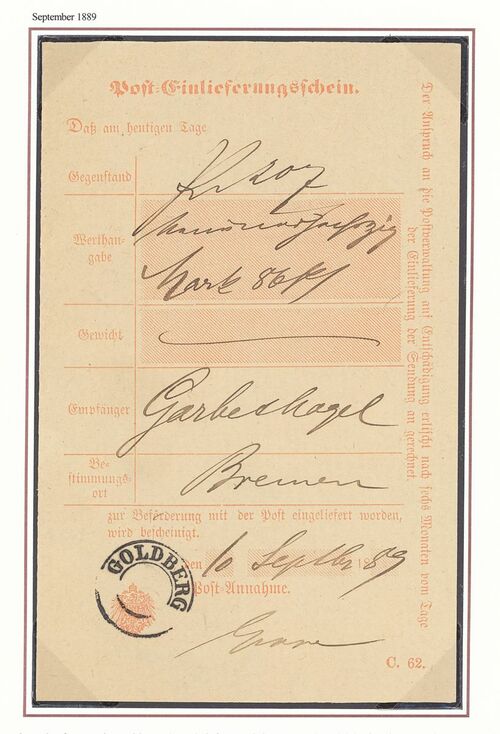 September 1889
Post-Einlieferungsschein.
Daß am heutigen Tage
Gegenstand
207
Werthan-
gabe
Mark 86 Pf
Gewicht
Empfänger
Garbeshagel
Be-
stimmungs-
ort
Bremen
zur Beförderung mit der Post eingeliefert worden,
wird bescheinigt.
GOLDBERG
den 10 Septbr 1889
Post-Annahme.
C. 62.
Der Anspruch an die Postverwaltung auf Entschädigung erlischt nach sechs Monaten vom Tage
der Einlieferung der Sendung an gerechnet.